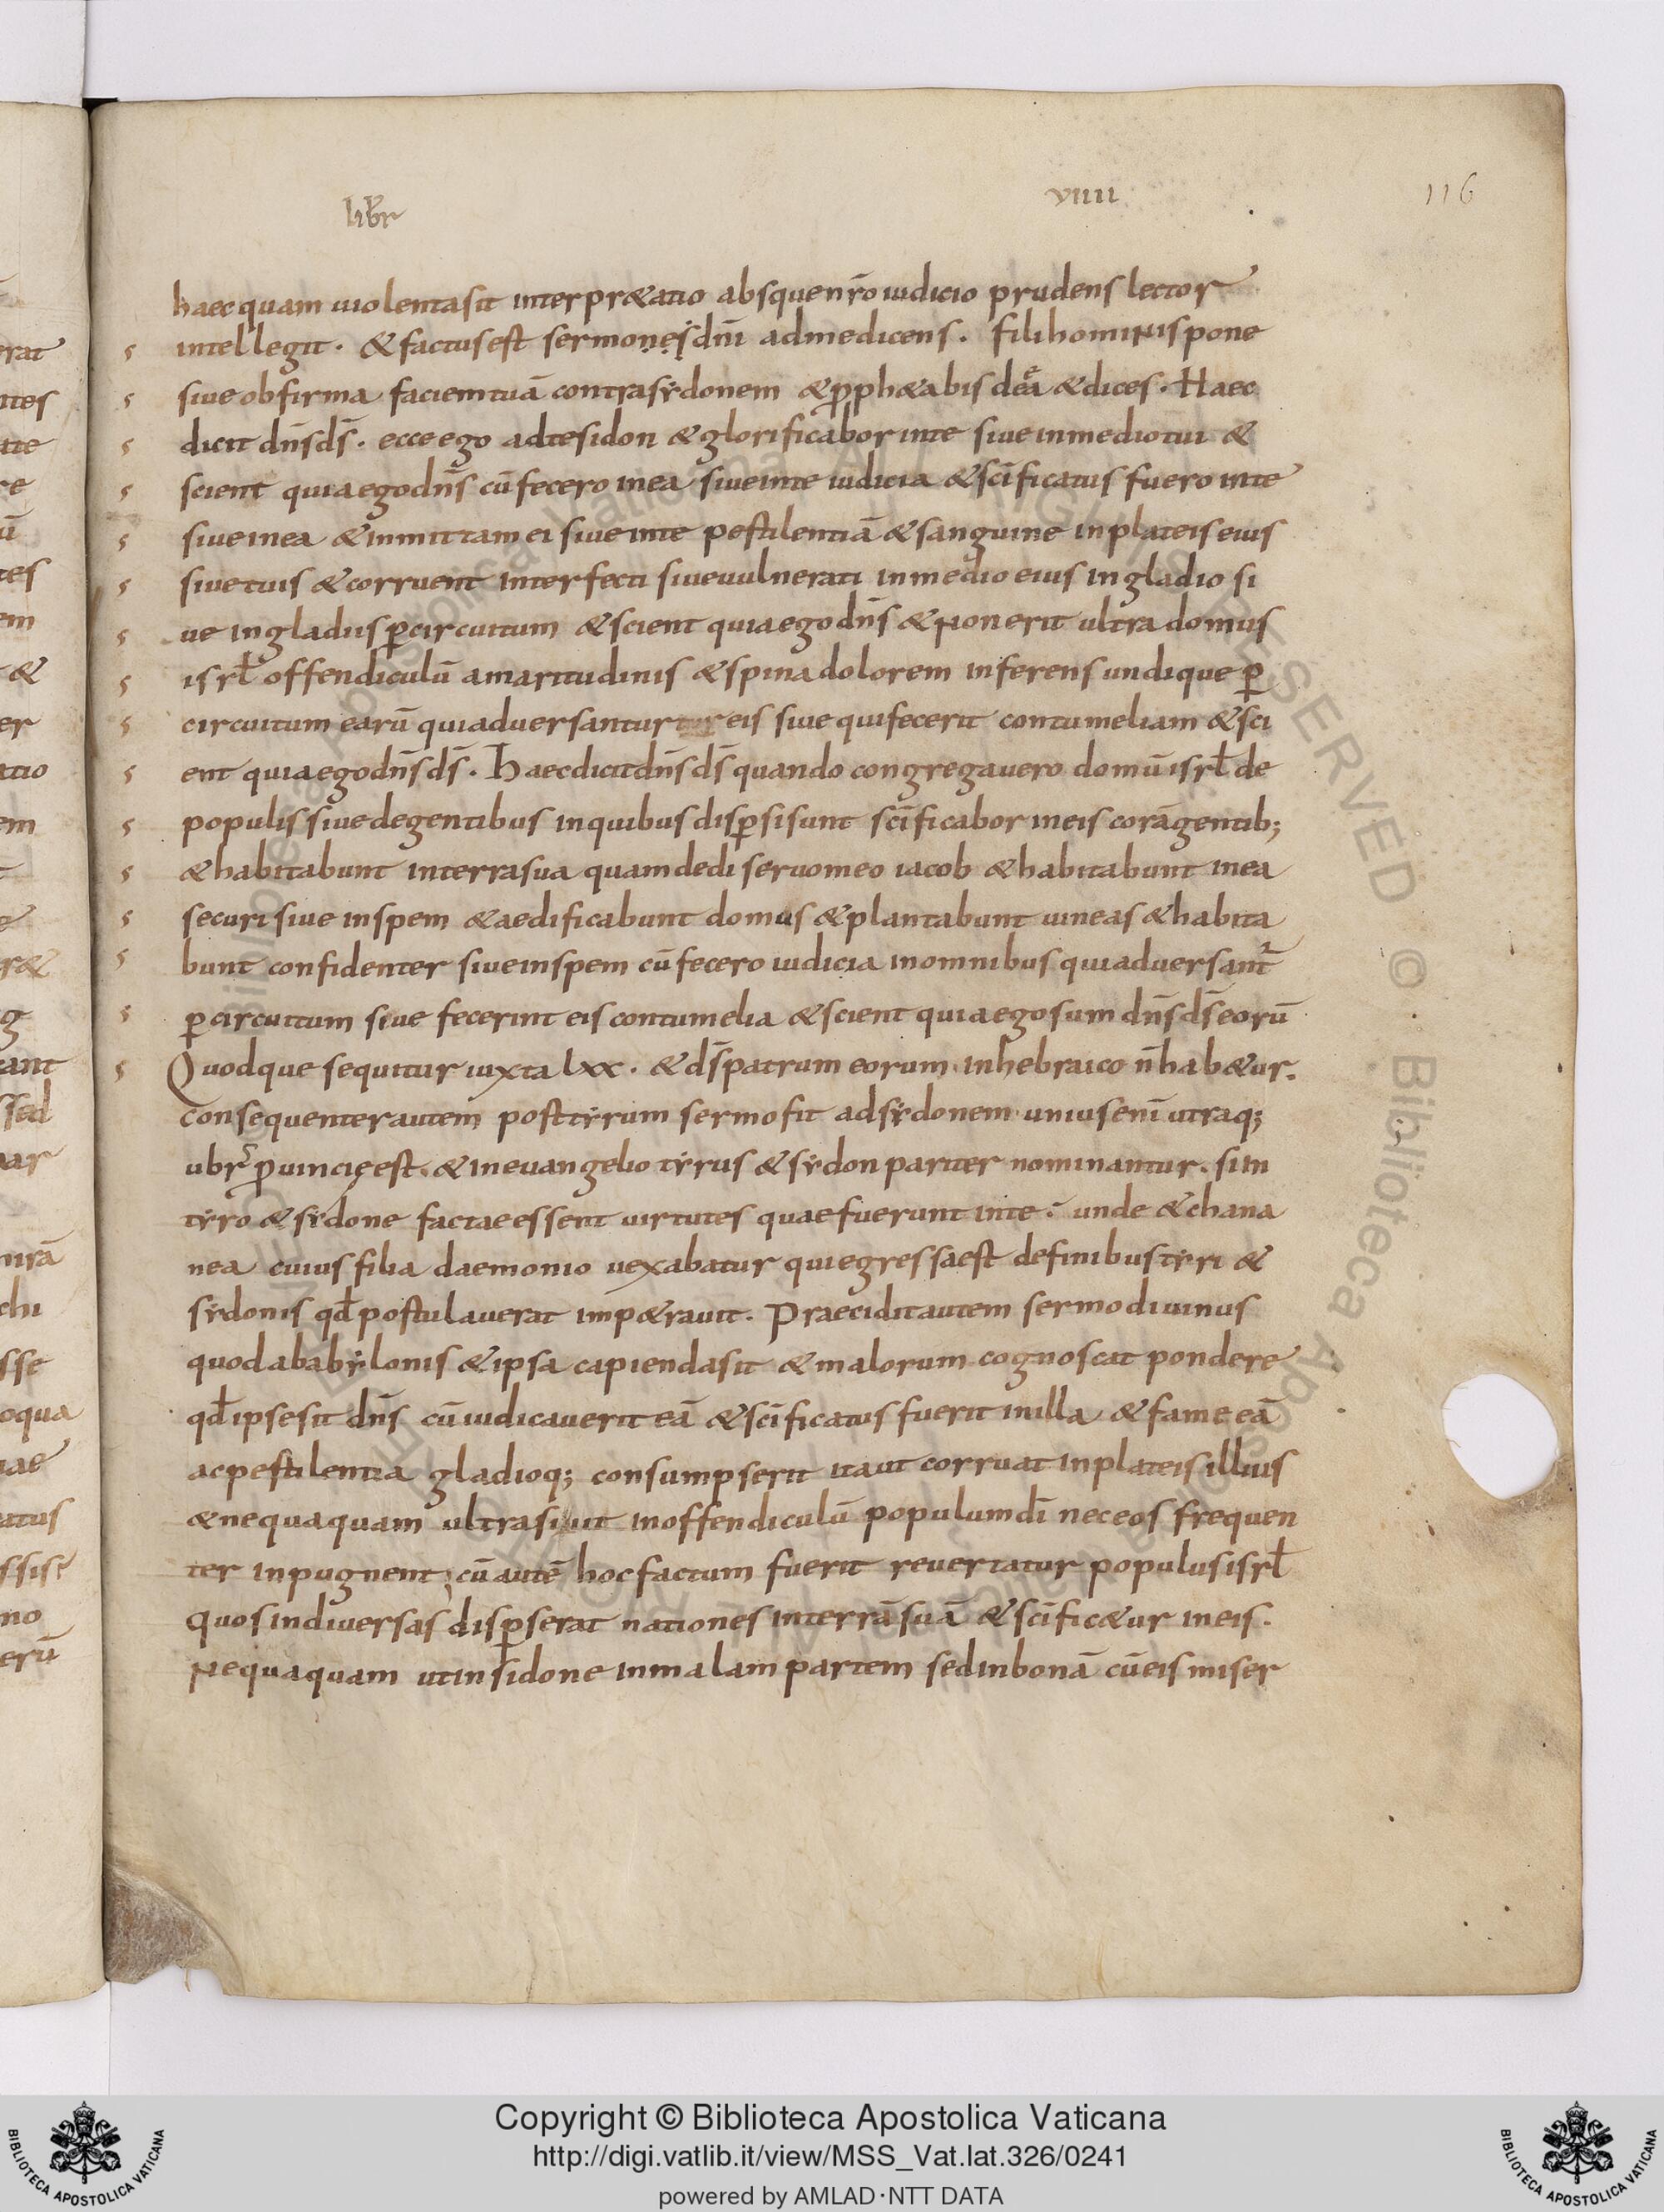 libr
viiii
116
haec quam uiolenta sit interpr&atio absque nr̄o iudicio prudens lector
intellegit. & factus est sermones dn̄i ad me dicens. fili hominis pone
siue obfirma faciem tuā contra sẏdonem & p̱ph&abis de eā & dices. Haec
dicit dn̄s ds̄. ecce ego ad te sidon & glorificabor in te siue in medio tui &
scient quia ego dn̄s cū fecero in ea siue in te iudicia & sc̄ificatus fuero in te
siue in ea & inmittam ei siue in te pestilentiā & sanguine in plateis eius
siue tuis & corruent interfecti siue uulnerati in medio eius in gladio si
ue in gladiis p̱ circuitum & scient quia ego dn̄s & non erit ultra domus
isrl̄ offendiculū amaritudinis & spina dolorem inferens undique p̱
circuitum earū qui aduersantur eis siue qui fecerit contumeliam & sci
ent quia ego dn̄s ds̄. Haec dicit dn̄s ds̄ quando congregauero domū isrl̄ de
populis siue de gentibus in quibus disp̱si sunt sc̄ificabor in eis corā gentib;
& habitabunt in terra sua quam dedi seruo meo iacob & habitabunt in ea
securi siue in spem & aedificabunt domus & plantabunt uineas & habita
bunt confidenter siue in spem cū fecero iudicia in omnibus qui aduersant᷑
p̱ circuitum siue fecerint eis contumelia & scient quia ego sum dn̄s ds̄ eorū
Quodque sequitur iuxta lxx. & ds̄ patrum eorum in hebraico n̄ hab&ur.
consequenter autem post tẏrum sermo fit ad sẏdonem unius enī utraq;
ubr̄s p̱uincię est. & in euangelio tẏrus & sẏdon pariter nominantur. si in
tẏro & sẏdone factae essent uirtutes quae fuerunt in te. unde & chana
nea cuius filia daemonio uexabatur qui egressa est de finibus tẏri &
sẏdonis qd̄ postulauerat imp&rauit. Praecidit autem sermo diuinus
quod a babẏlonis & ipsa capienda sit & malorum cognoscat pondere
qd̄ ipse sit dn̄s cū iudicauerit eā & sc̄ificatus fuerit in illa & fame eā
ac pestilentia gladioq; consumpserit ita ut corruat in plateis illius
& nequaquam ultra si ut in offendiculū populum dī nec eos frequen
ter inpugnent; cū autē hoc factum fuerit reuertatur populus isrl̄
quos in diuersas disp̱serat nationes in terrā suā & sc̄ific&ur in eis.
Nequaquam ut in sidone in malam partem sed in bonā cū eis miser
Copyright © Biblioteca Apostolica Vaticana
http://digi.vatlib.it/view/MSS_Vat.lat.326/0241
powered by AMLAD·NTT DATA
BIBLIOTECA APOSTOLICA VATICANA
BIBLIOTECA APOSTOLICA VATICANA